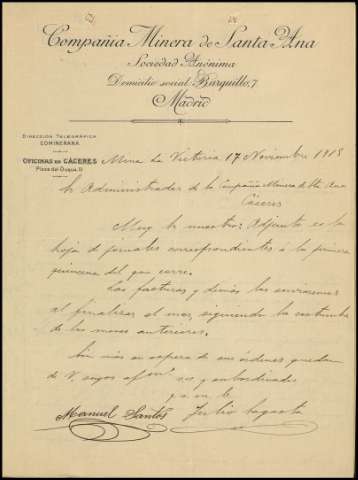 Compañia Minera de Santa Ana
Sociedad Anónima
Domicilio social Barquillo, 7
Madrid
DIRECCIÓN TELEGRÁFICA
COMINERANA
OFICINAS DE CÁCERES
Plaza del Duque, 11
Mina La Victoria 17 Noviembre 1915
Sr Administrador de la Compañia Minera de Sta Ana
Cáceres
Muy Sr nuestro: Adjunto es la
hoja de jornales correspondientes á la primera
quincena del que corre.
Las facturas y demás las enviaremos
al finalizar el mes, siguiendo la costumbre
de los meses anteriores.
Sin más en espera de sus órdenes quedan
de V. suyos y subordinados
q. s. m. b.
Manuel Santos Julio